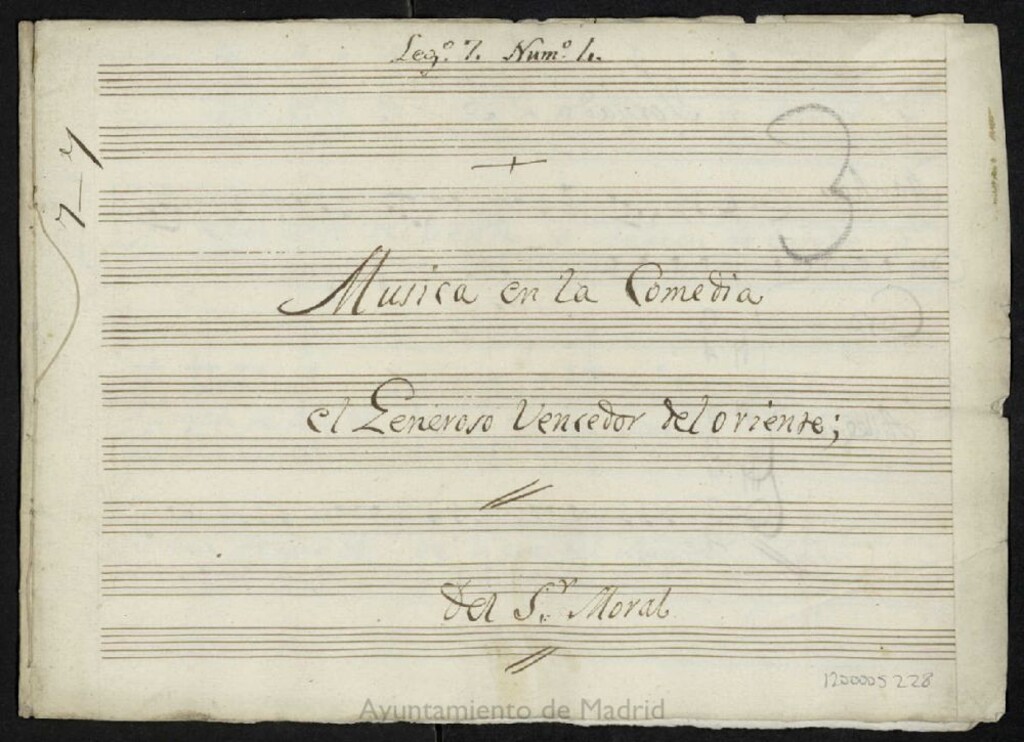 Leg.º 7. Num.º 1.
7-4
3
+
Musica en la Comedia
el Generoso Vencedor del oriente;
del S.r Moral
1200005228
Ayuntamiento de Madrid